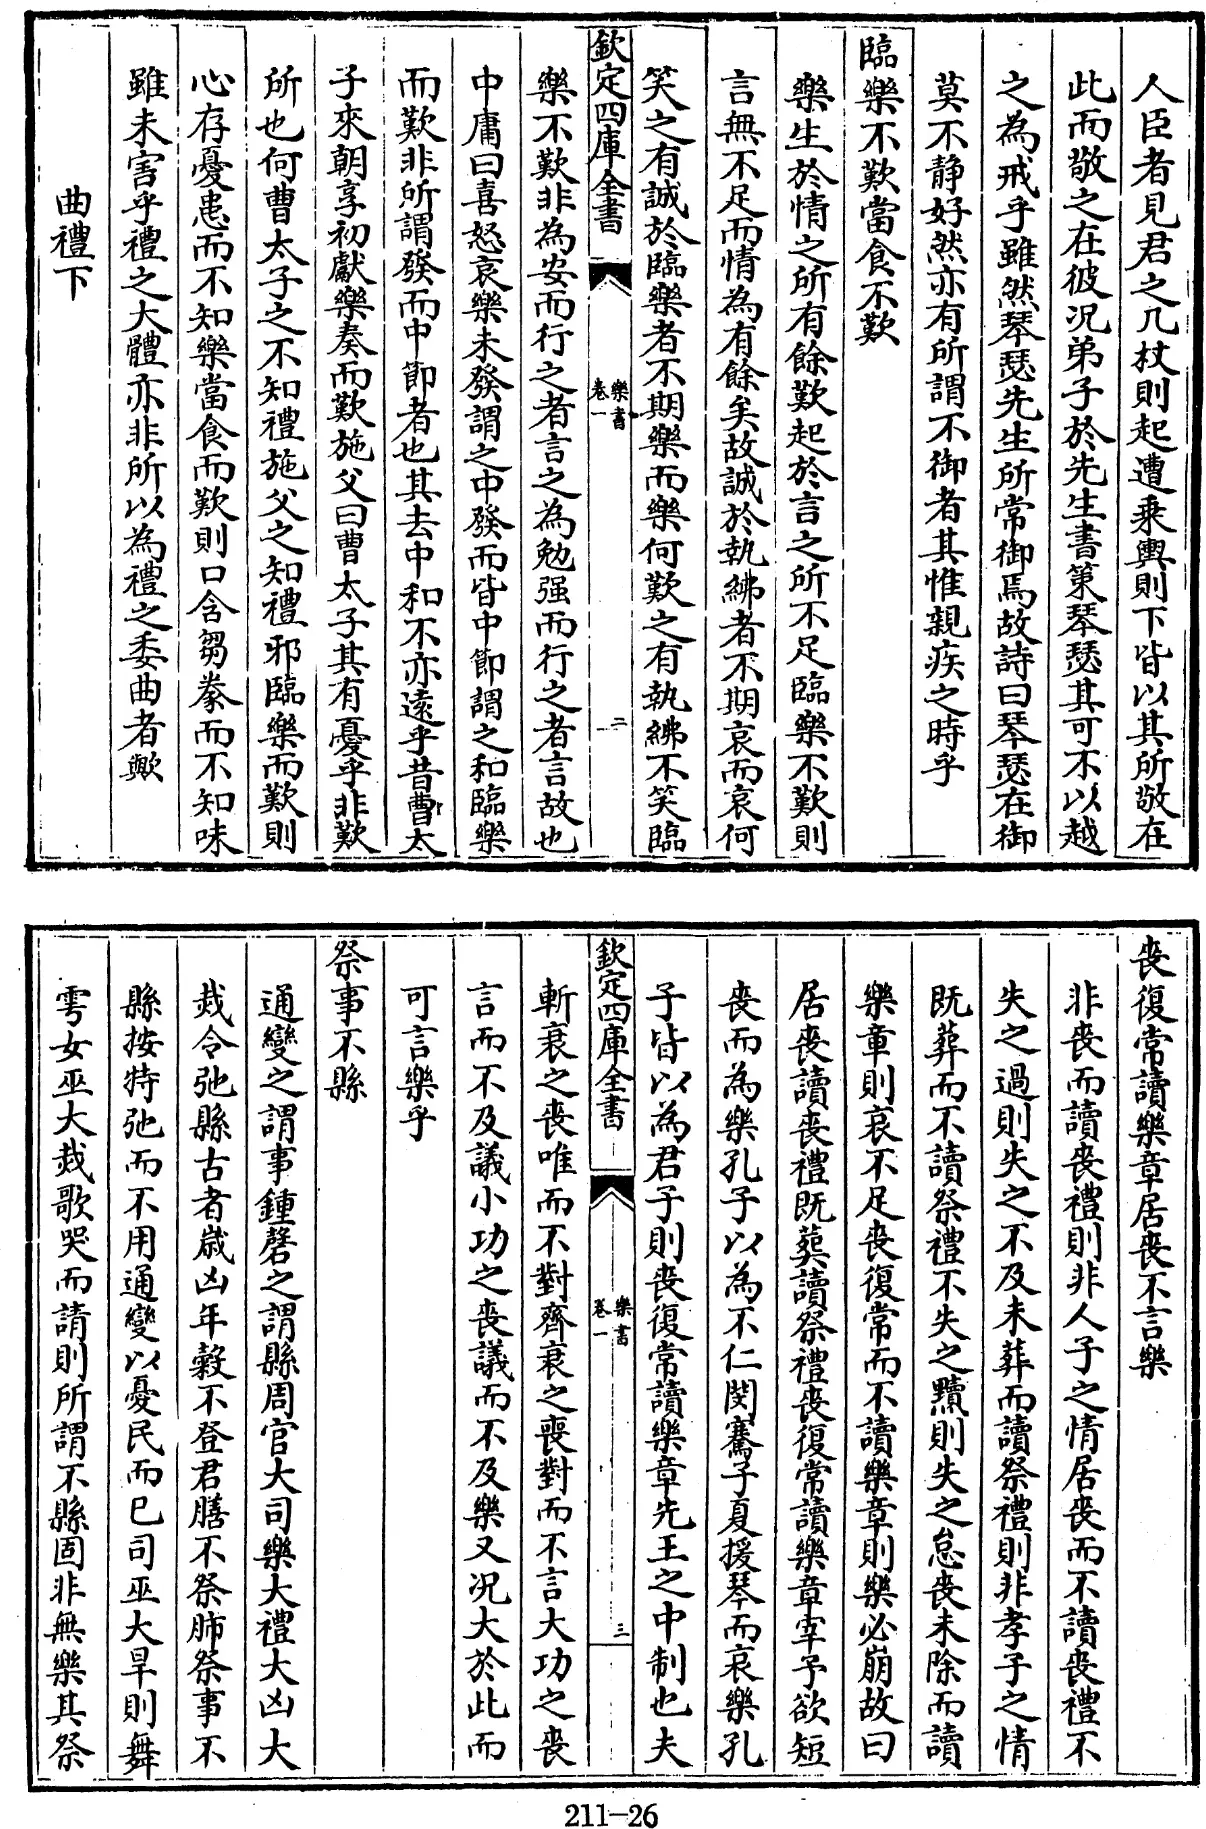 人臣者見君之几杖則起遭乘輿則下皆以其所敬在
此而敬之在彼况弟子於先生書策琴瑟其可不以越
之為戒乎雖然琴瑟先生所常御焉故詩曰琴瑟在御
莫不静好然亦有所謂不御者其惟親疾之時乎
臨樂不歎當食不歎
樂生於情之所有餘歎起於言之所不足臨樂不歎則
言無不足而情為有餘矣故誠於執紼者不期哀而哀何
笑之有誠於臨樂者不期樂而樂何歎之有執紼不笑臨
欽定四庫全書
樂書
卷一
二
樂不歎非為安而行之者言之為勉强而行之者言故也
中庸曰喜怒哀樂未發謂之中發而皆中節謂之和臨樂
而歎非所謂發而中節者也其去中和不亦遠乎昔曹太
子來朝享初獻樂奏而歎施父曰曹太子其有憂乎非歎
所也何曹太子之不知禮施父之知禮邪臨樂而歎則
心存憂患而不知樂當食而歎則口含芻豢而不知味
雖未害乎禮之大體亦非所以為禮之委曲者歟
曲禮下
喪復常讀樂章居喪不言樂
非喪而讀喪禮則非人子之情居喪而不讀喪禮不
失之過則失之不及未葬而讀祭禮則非孝子之情
既葬而不讀祭禮不失之黷則失之怠喪未除而讀
樂章則哀不足喪復常而不讀樂章則樂必崩故曰
居喪讀喪禮既葬讀祭禮喪復常讀樂章宰予欲短
喪而為樂孔子以為不仁閔騫子夏援琴而哀樂孔
子皆以為君子則喪復常讀樂章先王之中制也夫
欽定四庫全書
樂書
卷一
三
斬衰之喪唯而不對齊衰之喪對而不言大功之喪
言而不及議小功之喪議而不及樂又况大於此而
可言樂乎
祭事不縣
通變之謂事鍾磬之謂縣周官大司樂大禮大凶大
烖令弛縣古者嵗凶年穀不登君膳不祭肺祭事不
縣按特弛而不用通變以憂民而已司巫大旱則舞
雩女巫大烖歌哭而請則所謂不縣固非無樂其祭
211-26